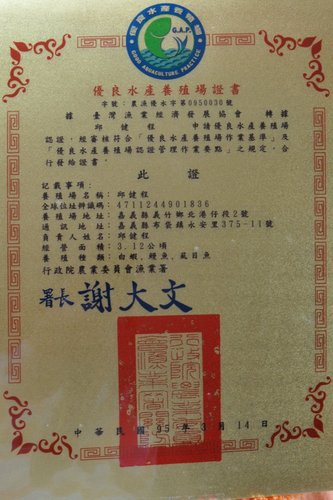 優良水產養殖場
G.A.P.
GOOD AQUACULTURE PRACTICE
優良水產養殖場證書
字號：農漁優水字第0950030號
據 臺灣漁業經濟發展協會 轉據
邱健程 申請優良水產養殖場
認證，經審核符合「優良水產養殖場作業基準」及
「優良水產養殖場認證管理作業要點」之規定，合
行發給證書。
此證
記載事項：
養殖場姓名：邱健程
全球位址辨識碼：4711244901836
養殖場地址：嘉義縣義竹鄉北港仔段2號
通訊地址：嘉義縣布袋鎮永安里375-11號
負責人姓名：邱健程
經營面積：3.12公頃
養殖種類：白蝦、鰻魚、虱目魚
行政院農業委員會漁業署
署長 謝大文
行政院農業委員會漁業署印
中華民國 95 年 3 月 14 日